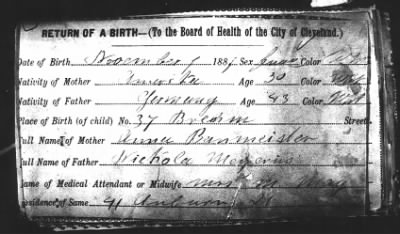 RETURN OF A BIRTH—(To the Board of Health of the City of Cleveland.)
Date of Birth November 1 188 Sex Color
Nativity of Mother Age 30 Color
Nativity of Father Germany Age 43 Color
Place of Birth (of child) No. 37 Street
Full Name of Mother Anna Baumeister
Full Name of Father Nichola
Name of Medical Attendant or Midwife Mrs M May
Residence of Same 41 Auburn St